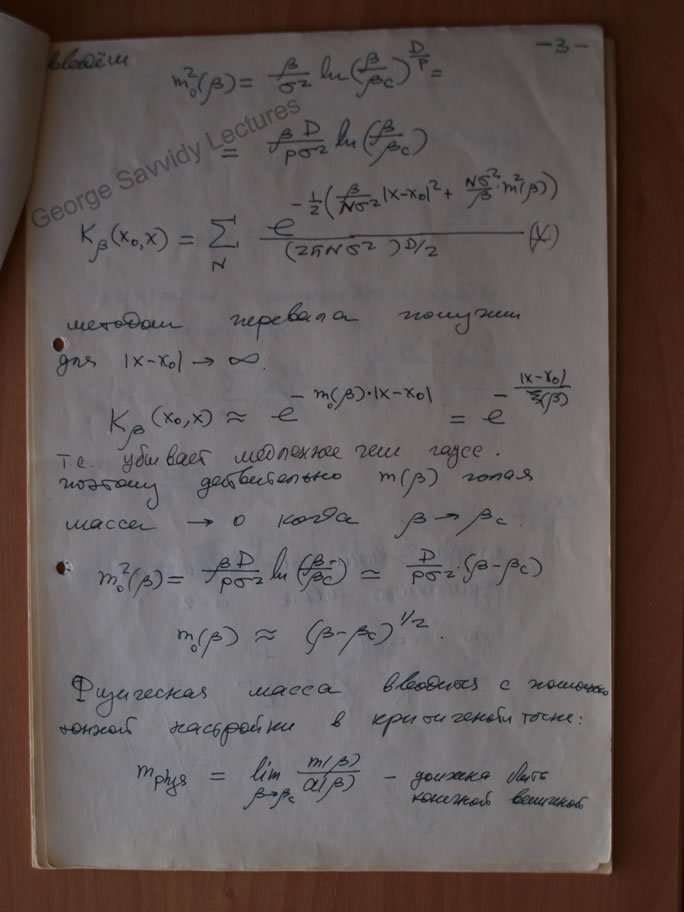 введём
-3-
m₀²(β) = β/σ² ln(β/βc)^{D/p} =
= βD/pσ² ln(β/βc)
George Savvidy Lectures
K_β(x₀,x) = Σ_N e^{-1/2(β/Nσ²|x-x₀|² + Nσ²/β·m²(β))}/(2πNσ²)^{D/2}
методом перевала получим
для |x-x₀| → ∞.
K_β(x₀,x) ≈ e^{-m₀(β)·|x-x₀|} = e^{-|x-x₀|/ξ(β)}
т.е. убывает медленнее чем гаусс.
поэтому действительно m(β) голая
масса → 0 когда β → βc.
m₀²(β) = βD/pσ² ln(β/βc) ≃ D/pσ²·(β-βc)
m₀(β) ≈ (β-βc)^{1/2}.
Физическая масса вводится с помощью
тонкой настройки в критической точке:
m_phys = lim_{β→βc} m(β)/a(β) - должна быть
конечной величиной